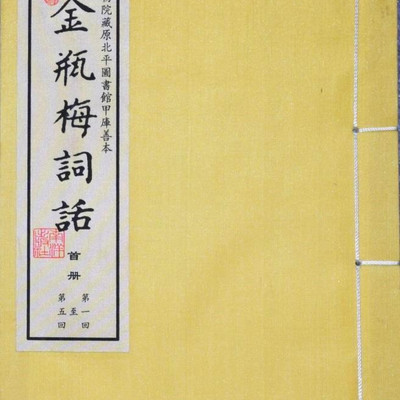 院藏原北平圖書館甲庫善本
金瓶梅詞話
首册
第一回
至
第五回